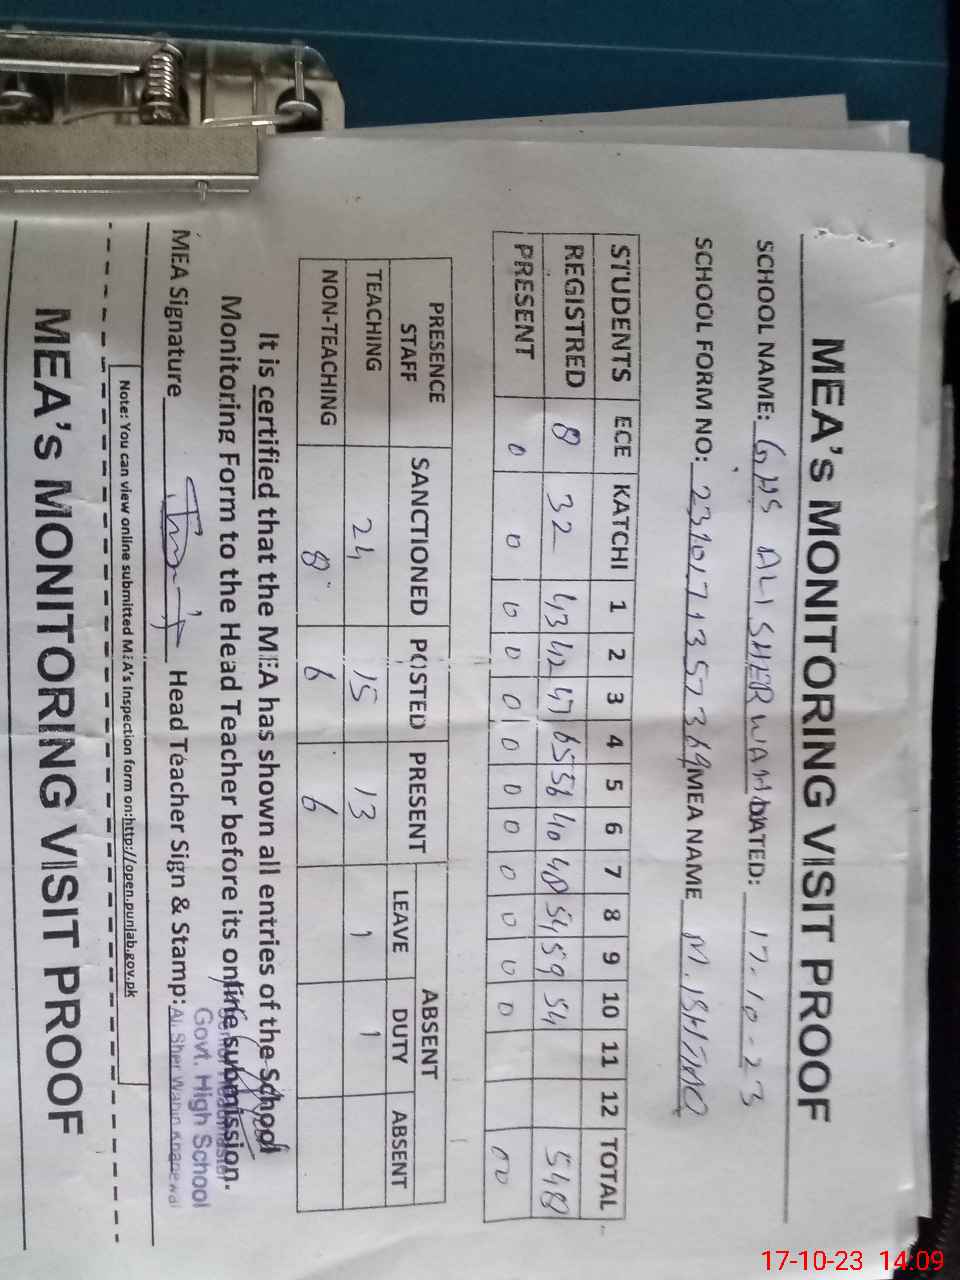 MEA's MONITORING VISIT PROOF
SCHOOL NAME: GHS ALI SHER WAHN DATED: 17-10-23
SCHOOL FORM NO: MEA NAME M. ISHTIAQ
STUDENTS ECE KATCHI 1 2 3 4 5 6 7 8 9 10 11 12 TOTAL
REGISTRED 8 32 43 42 47 65 56 40 48 54 59 54 548
PRESENT 0 0 0 0 0 0 0 0 0 0 0 0 00
PRESENCE STAFF SANCTIONED POSTED PRESENT ABSENT
LEAVE DUTY ABSENT
TEACHING 24 15 13 1 1
NON-TEACHING 8 6 6
It is certified that the MEA has shown all entries of the School
Monitoring Form to the Head Teacher before its online submission.
MEA Signature Head Teacher Sign & Stamp:
Senior Headmaster
Govt. High School
Ali Sher Wahn Khanewal
Note: You can view online submitted MEA's Inspection form on:http://open.punjab.gov.pk
MEA's MONITORING VISIT PROOF
17-10-23 14:09